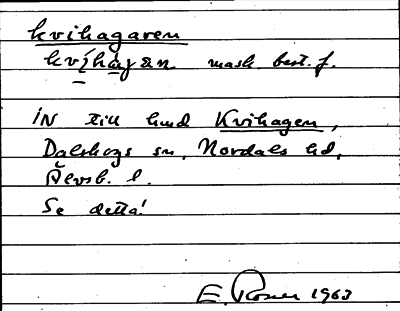 kvihagaren
kvíhàgan mask. best. f.
IN till hmd Kvihagen,
Dalskogs sn, Nordals hd,
Älvsb. l.
Se detta!
E. Rosen 1963